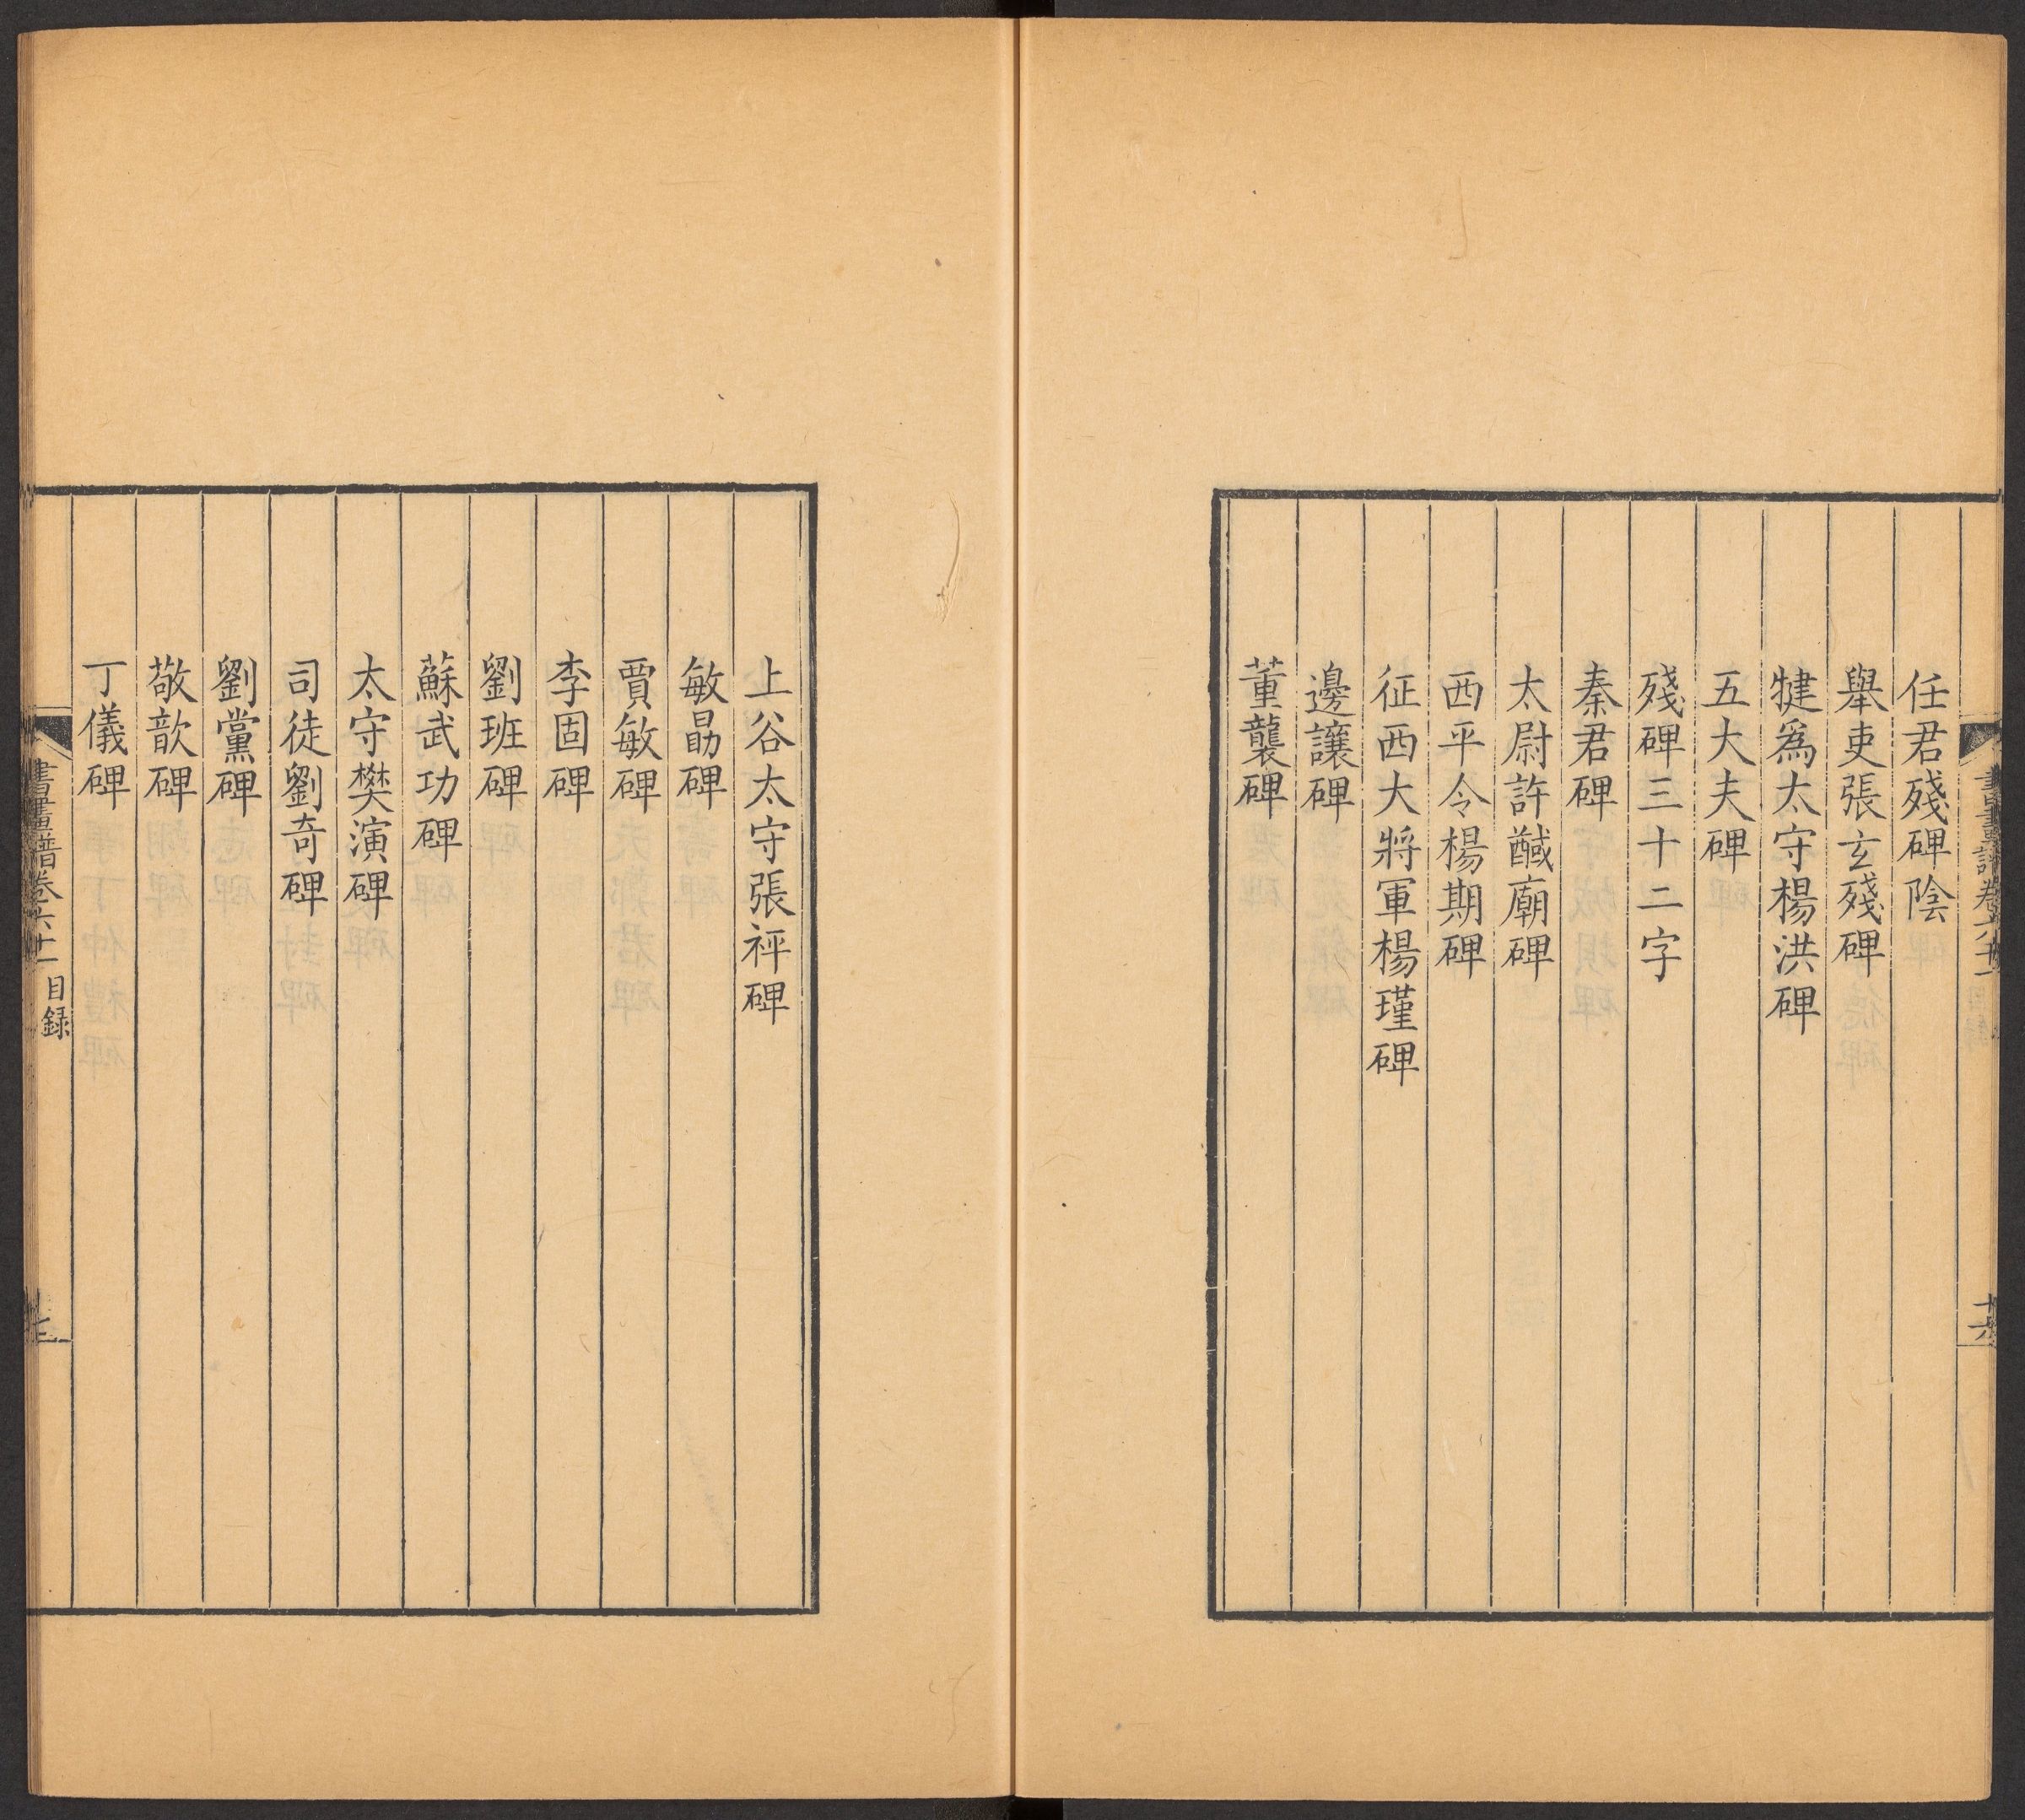 任君殘碑陰
舉吏張玄殘碑
犍爲太守楊洪碑
五大夫碑
殘碑三十二字
秦君碑
太尉許馘廟碑
西平令楊期碑
征西大將軍楊瑾碑
邊讓碑
董襲碑
上谷太守張祥碑
敏勗碑
賈敏碑
李固碑
劉班碑
蘇武功碑
太守樊演碑
司徒劉奇碑
劉黨碑
敬歆碑
丁儀碑
書畫譜卷六十一 目録